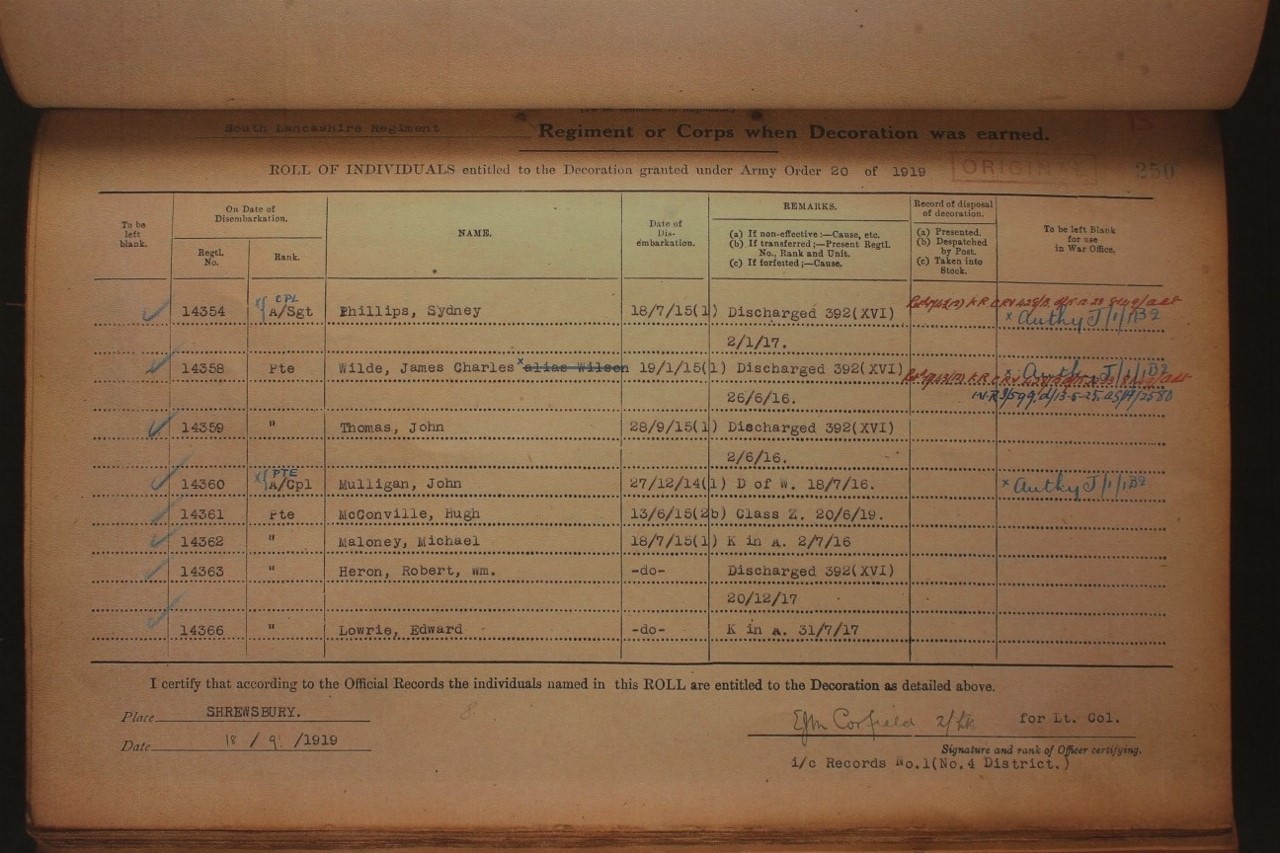 South Lancashire Regiment Regiment or Corps when Decoration was earned.
ROLL OF INDIVIDUALS entitled to the Decoration granted under Army Order 20 of 1919 ORIGINAL 250
To be left blank.
On Date of Disembarkation.
Regtl. No.
Rank.
NAME.
Date of Dis-embarkation.
REMARKS.
(a) If non-effective:—Cause, etc.
(b) If transferred;—Present Regtl. No., Rank and Unit.
(c) If forfeited;—Cause.
Record of disposal of decoration.
(a) Presented.
(b) Despatched by Post.
(c) Taken into Stock.
To be left Blank for use in War Office.
CPL
14354 x A/Sgt Phillips, Sydney 18/7/15(1) Discharged 392(XVI) x Authy J/1/1B2
2/1/17.
14358 Pte Wilde, James Charles x alias Wilson 19/1/15(1) Discharged 392(XVI) x Authy J/1/1B2
26/6/16.
14359 " Thomas, John 28/9/15(1) Discharged 392(XVI)
2/6/16.
PTE
14360 x A/Cpl Mulligan, John 27/12/14(1) D of W. 18/7/16. x Authy J/1/1B2
14361 Pte McConville, Hugh 13/6/15(2b) Class Z. 20/6/19.
14362 " Maloney, Michael 18/7/15(1) K in A. 2/7/16
14363 " Heron, Robert, wm. -do- Discharged 392(XVI)
20/12/17
14366 " Lowrie, Edward -do- K in A. 31/7/17
I certify that according to the Official Records the individuals named in this ROLL are entitled to the Decoration as detailed above.
Place SHREWSBURY.
Date 18 / 9 /1919
Corfield 2/Lt for Lt. Col.
Signature and rank of Officer certifying.
i/c Records No.1(No.4 District.)